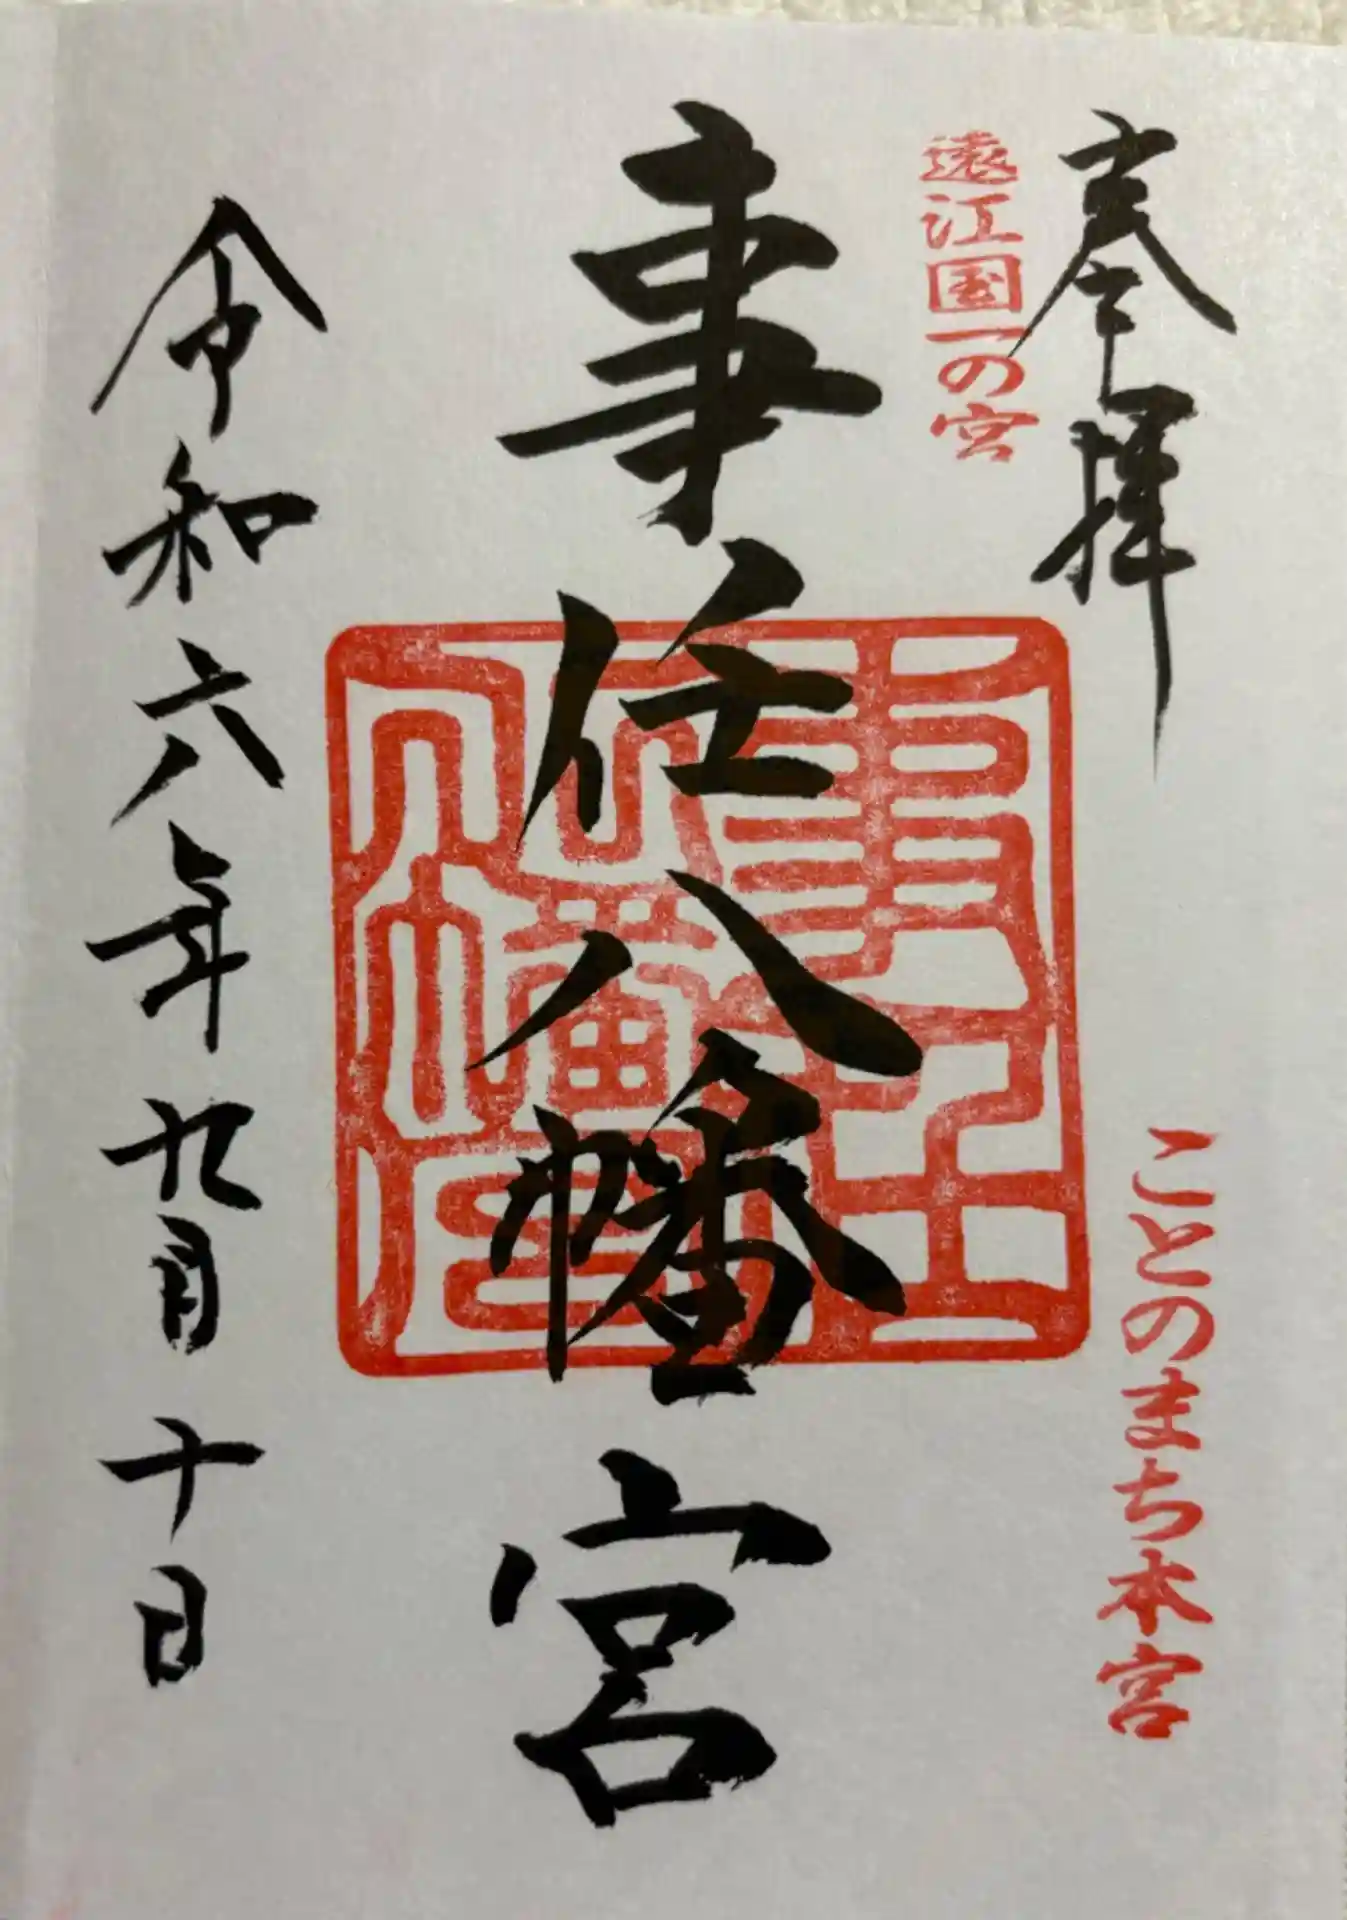 奉拝
ことのまち本宮
遠江国一の宮
事任八幡宮
事任
八幡宮
令和六年九月十日